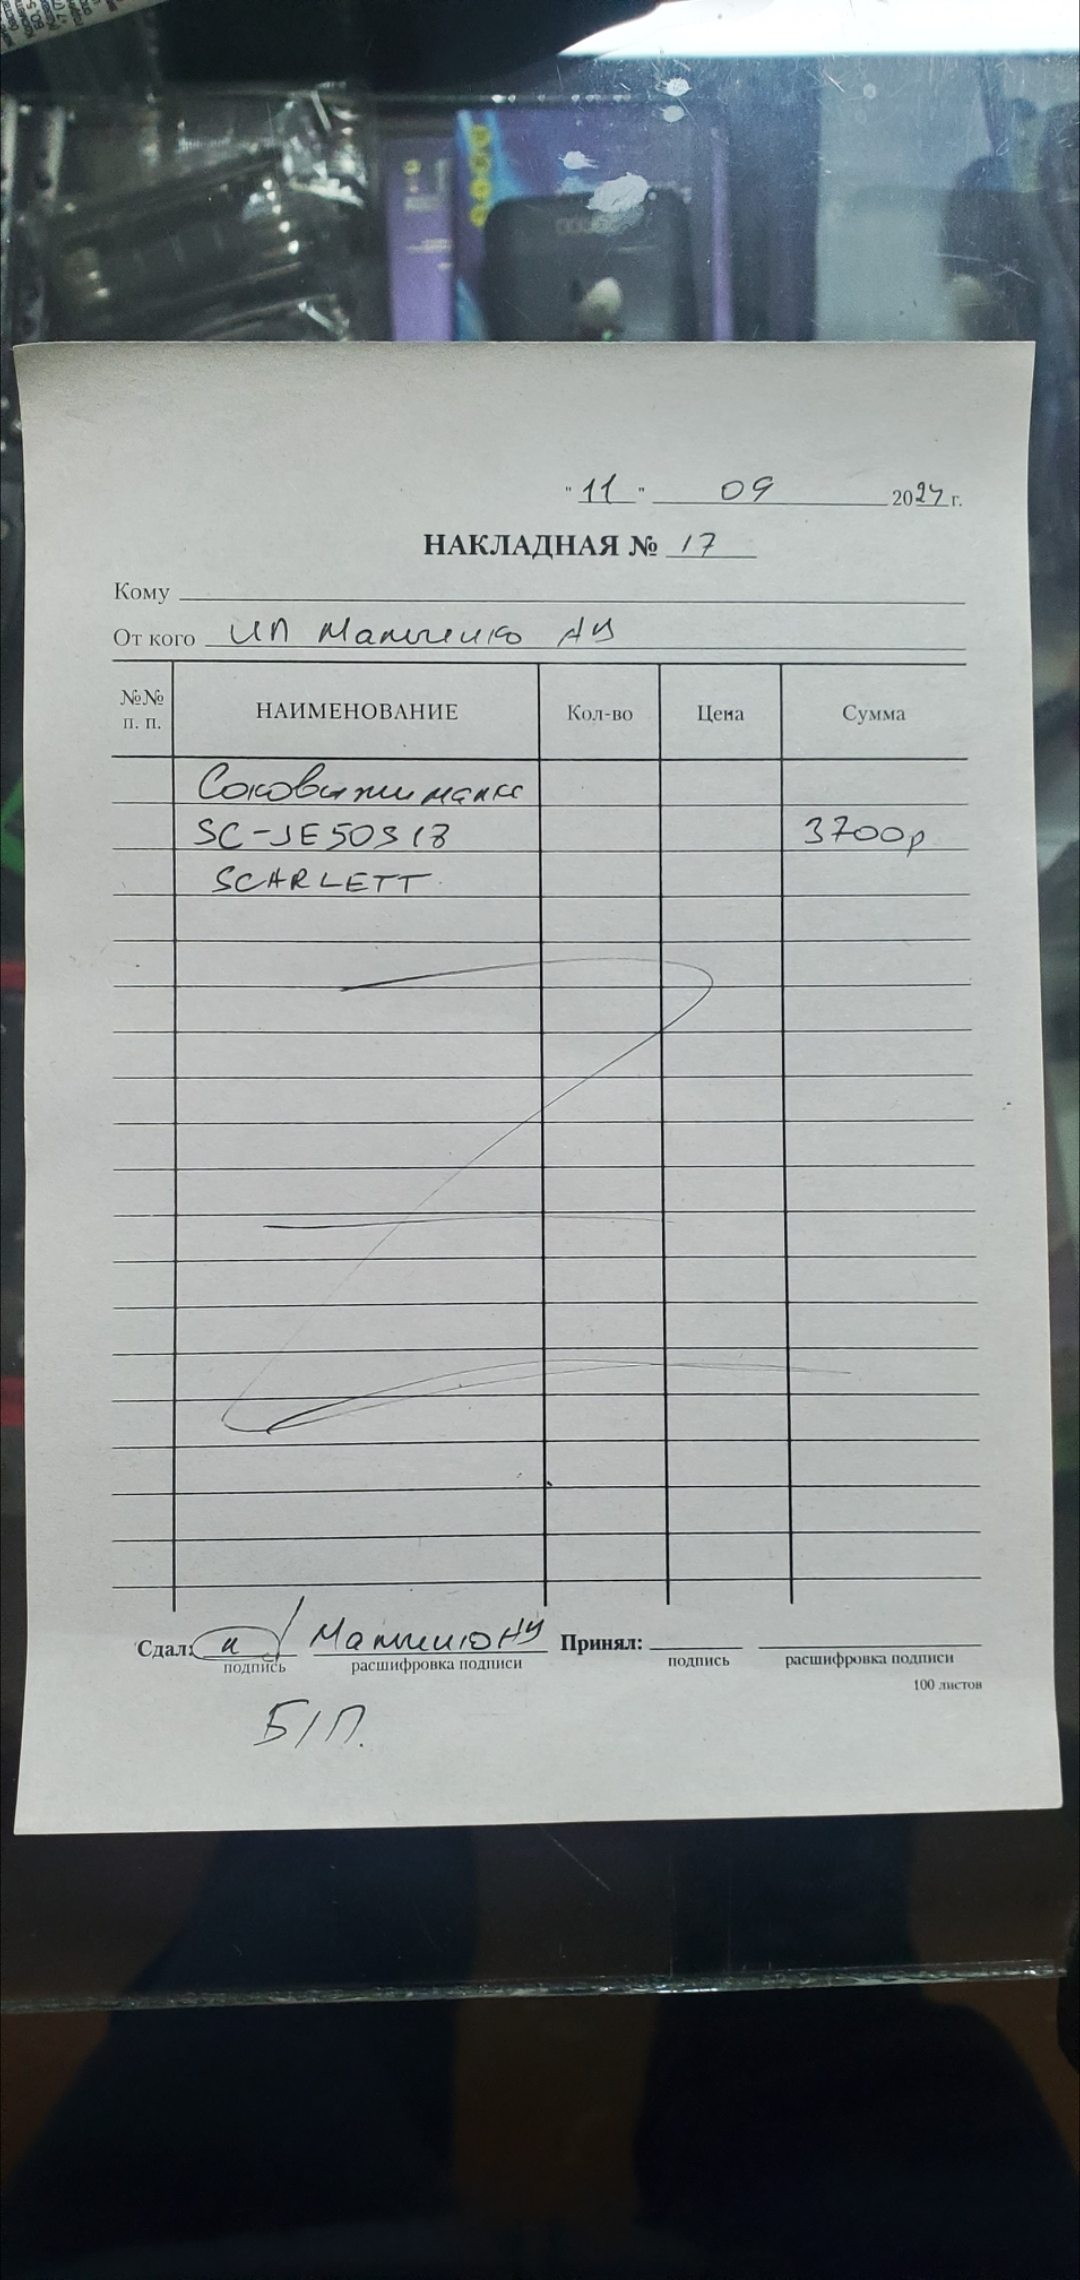 "11" 09 2024 г.
НАКЛАДНАЯ № 17
Кому
От кого ИП
№№ п. п. НАИМЕНОВАНИЕ Кол-во Цена Сумма
Соковыжималка
SC-JE50S18 3700р
SCARLETT
Сдал: Принял:
подпись расшифровка подписи подпись расшифровка подписи
100 листов
Б/П.